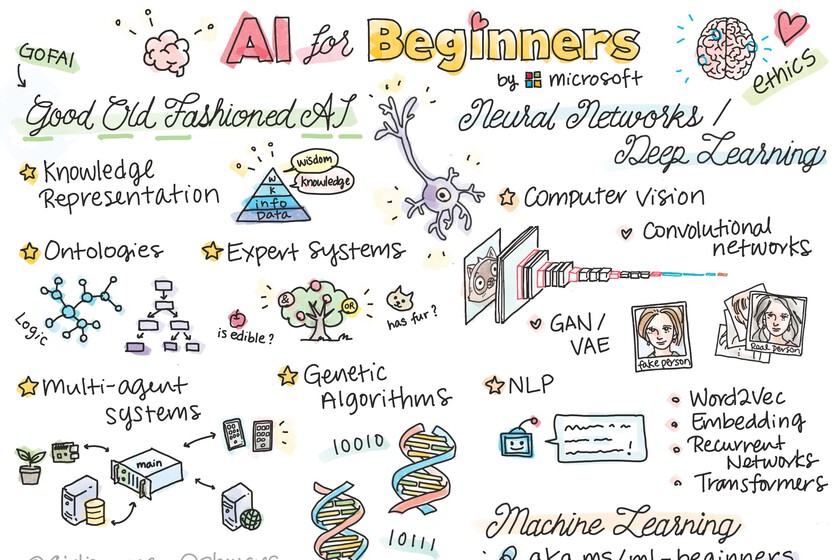 AI for Beginners
by microsoft
GOFAI
Good Old Fashioned AI
Knowledge
Representation
wisdom
knowledge
W
K
info
Data
Ontologies
Logic
Expert Systems
&
OR
is edible?
has fur?
Multi-agent
systems
main
Genetic
Algorithms
10010
10111
ethics
Neural Networks /
Deep Learning
Computer Vision
Convolutional
networks
GAN /
VAE
fake person
Real person
NLP
Word2Vec
Embedding
Recurrent
Networks
Transformers
Machine Learning
aka.ms/ml-beginners